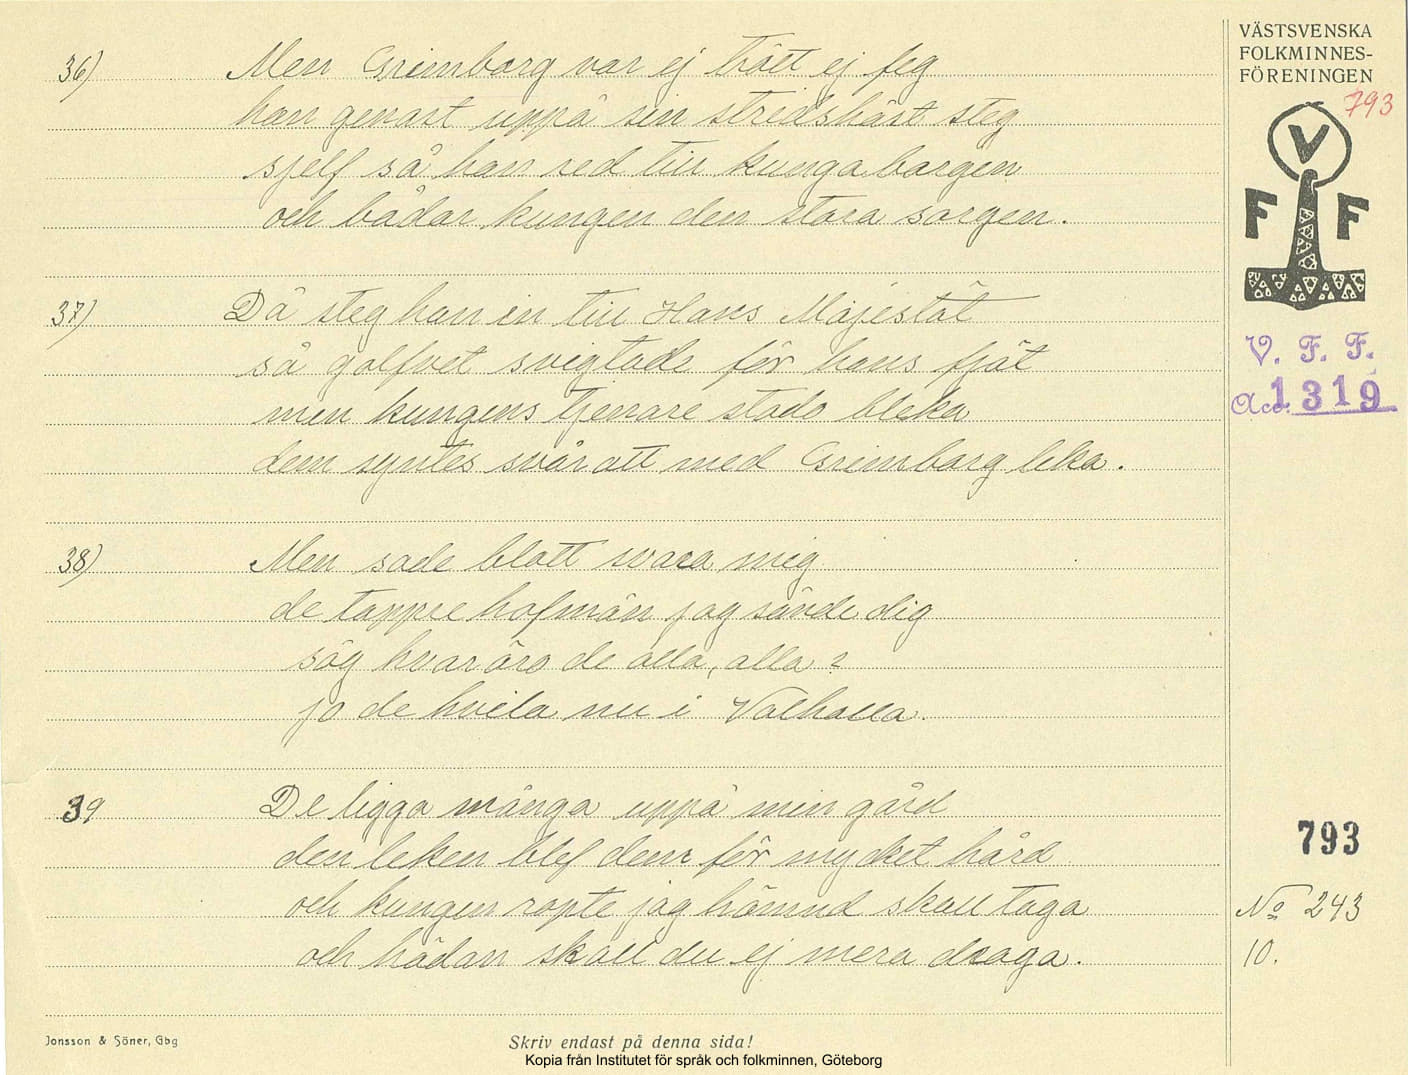 VÄSTSVENSKA
FOLKMINNES-
FÖRENINGEN
793
V
F F
V. F. F.
Acc. 1319
36) Men Grimborg var ej trött ej feg
han genast uppå sin stridshäst steg
sjelf så han red till kungaborgen
och bådar kungen den stora sorgen.
37) Då steg han in till Hans Majestät
så golfvet svigtade för hans fjät
men kungens tjenare stodo bleka
dem syntes svår att med Grimborg leka.
38) Men sade blott svara mig
de tappre hofmän jag sände dig
säg hvar äro de alla, alla?
jo de hvila nu i Valhalla.
39 De ligga många uppå min gård
den leken blef dem för mycket hård
och kungen ropte jag hämnd skall taga
och hädan skall du ej mera draga.
793
No 243
10.
Jonsson & Söner, Gbg
Skriv endast på denna sida!
Kopia från Institutet för språk och folkminnen, Göteborg